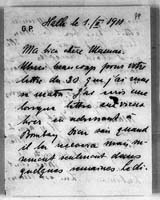 G.P.
Halle le 1./II 1910
Ma bien chère Maman.
Merci beaucoup pour votre
lettre du 30 que j'ai reçue
ce matin. J'ai écris une
longue lettre au vieux
hier en adressant à
Bombay bien quand
il la recevra mais
seulement dans
quelques semaines